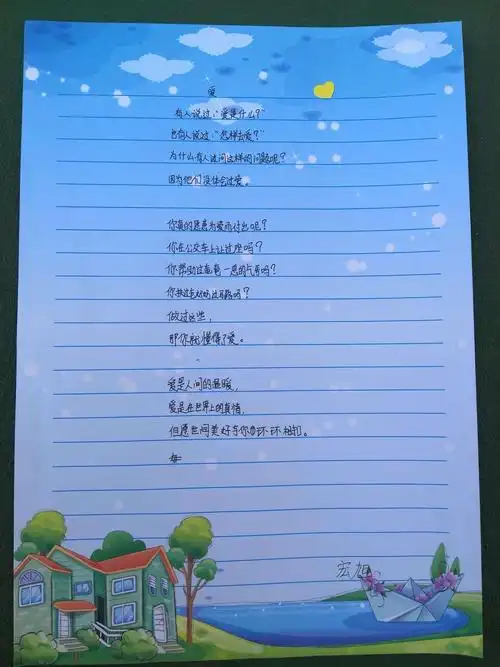 爱
有人说过:"爱是什么?"
也有人说过:"怎样去爱?"
为什么有人过问这样的问题呢?
因为他们没体会过爱。
你真的愿意为爱而付出呢?
你在公交车上让过座吗?
你帮助过奄奄一息的乞丐吗?
你扶过老奶奶过马路吗?
做过这些,
那你就懂得了爱。
爱是人间的温暖,
爱是在世界上的真情,
但愿世间美好与你环环相扣。
宏旭